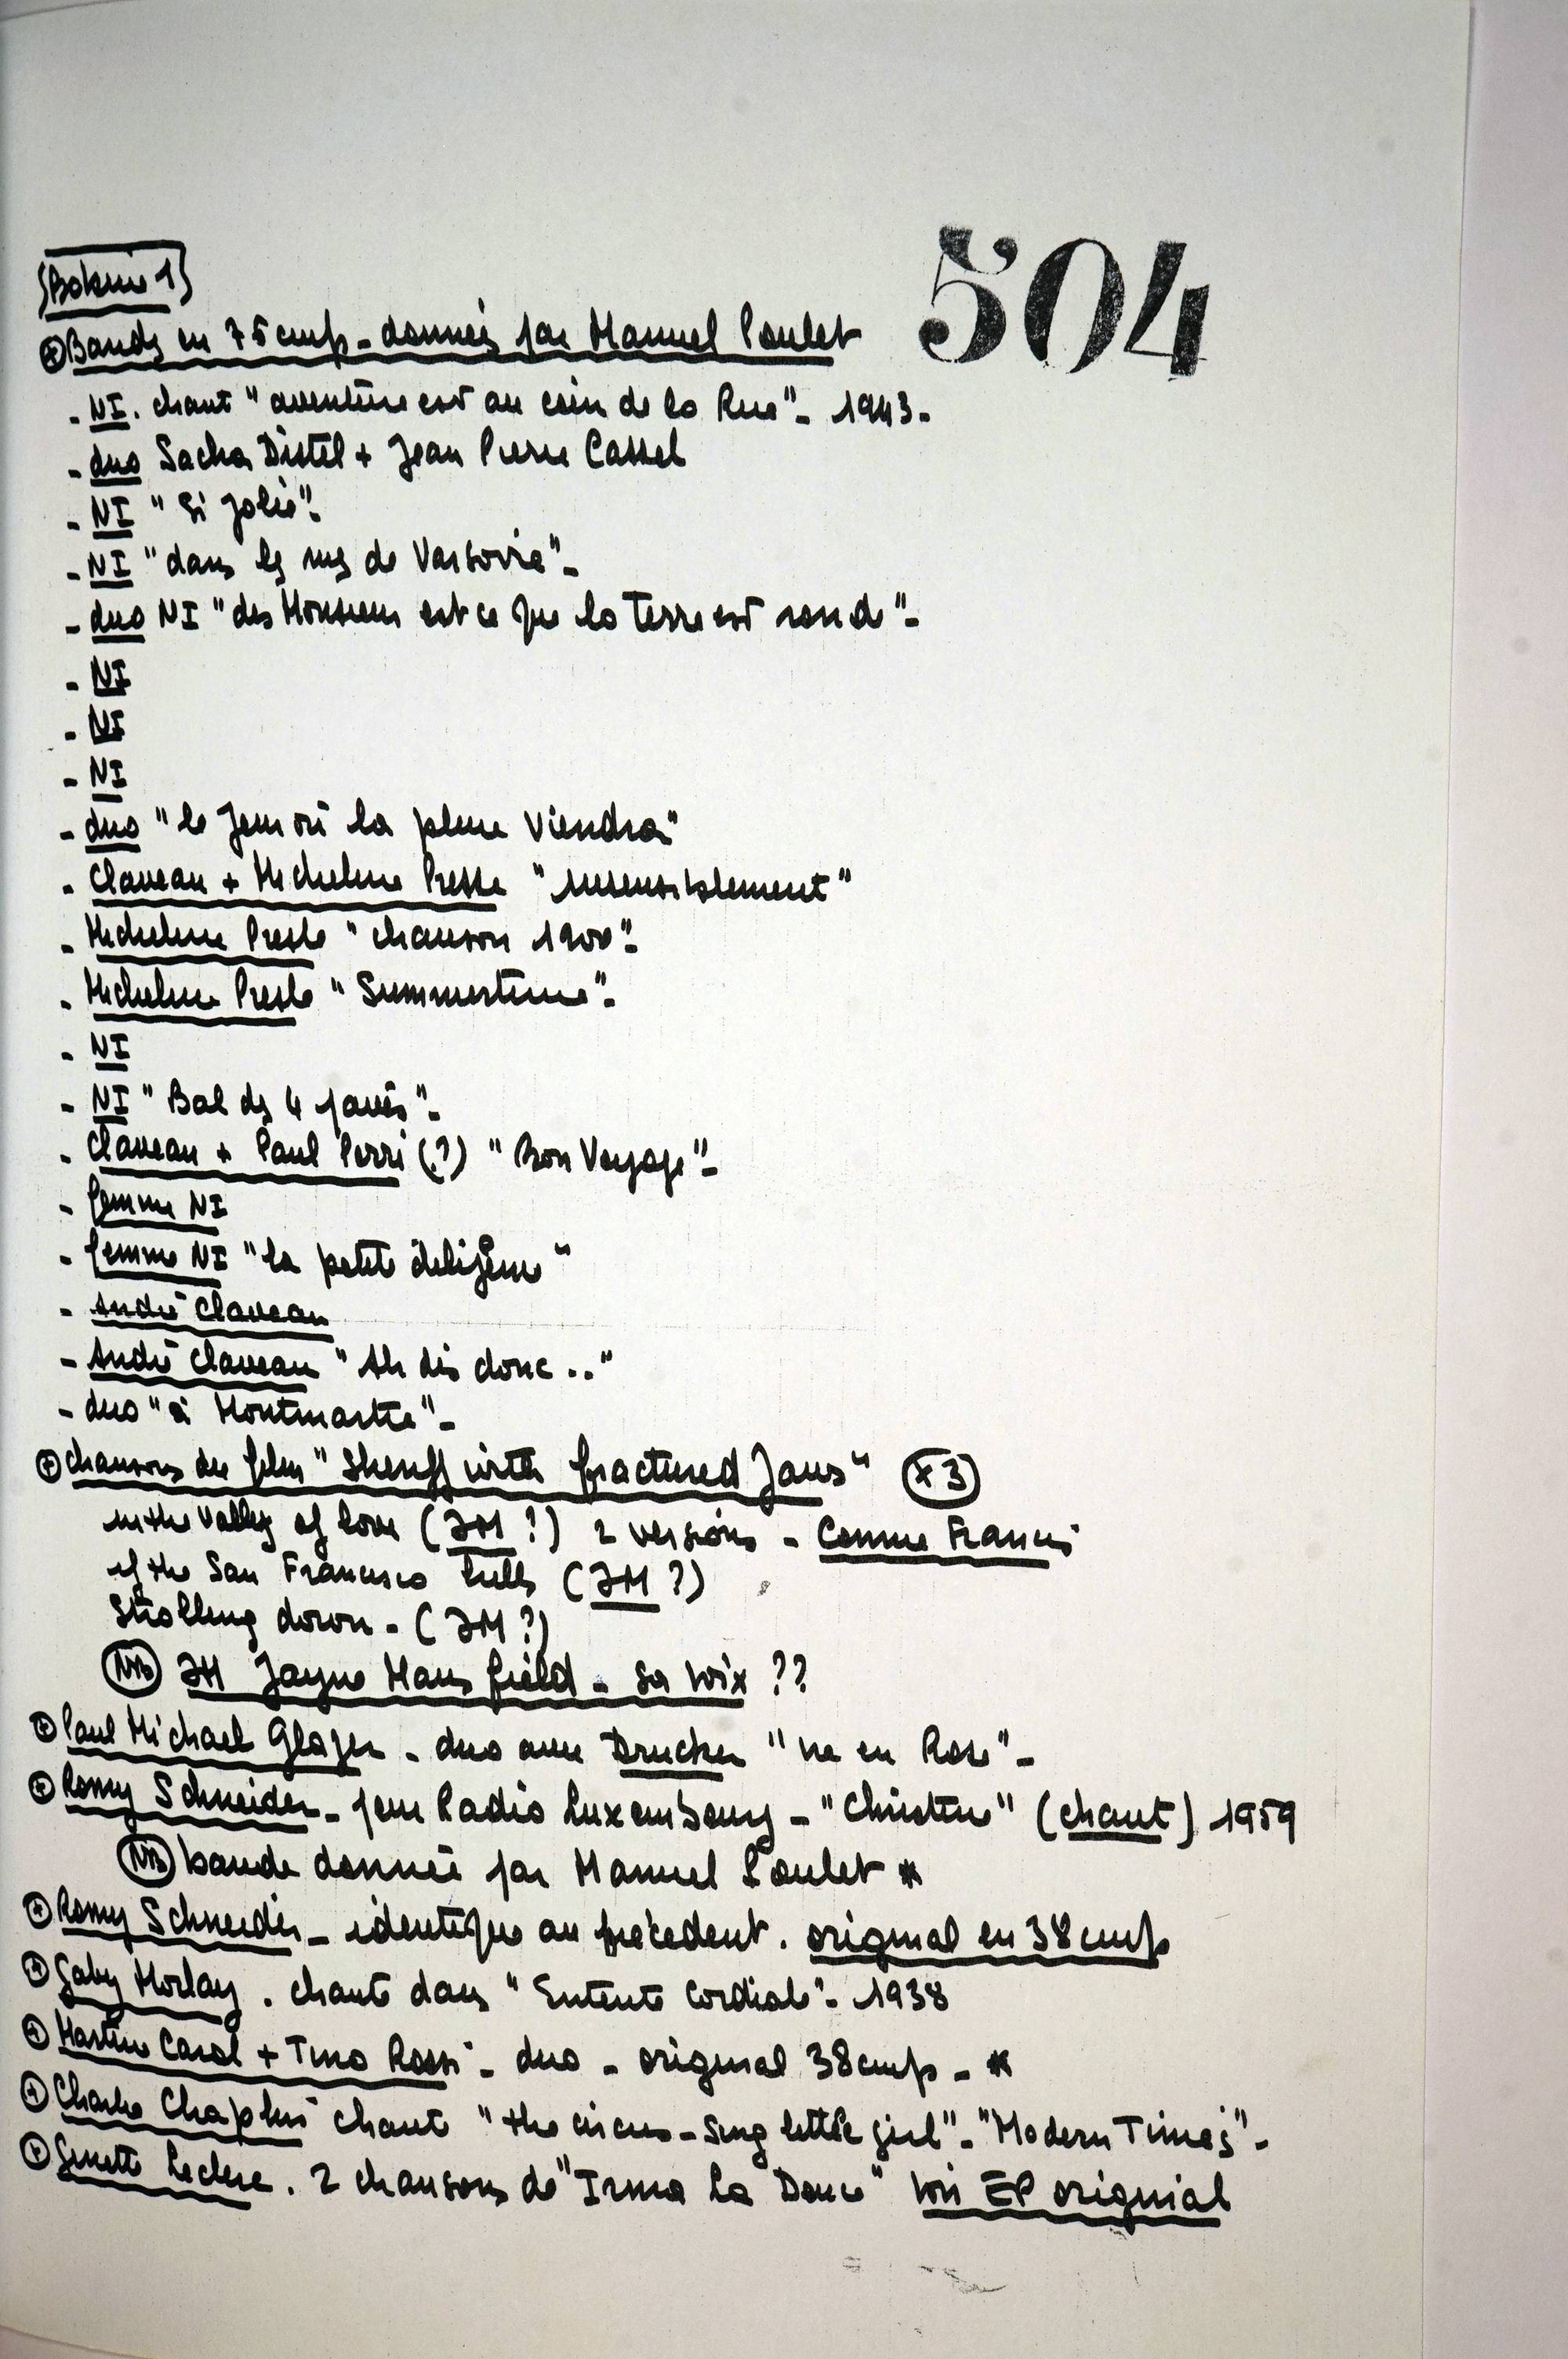 504
{Bobine 1}
⊕ Bandes en 75 cm/s - données par Manuel Poulet
- NI. chant "aventure est au coin de la Rue" - 1943 -
- duo Sacha Distel + Jean Pierre Cassel
- NI "Si jolie" -
- NI "dans les rues de Varsovie" -
- duo NI "des Monsieur est ce que la Terre est ronde" -
- NI
- NI
- NI
- duo "le jour où la pluie viendra"
- Claveau + Micheline Presle "insensiblement"
- Micheline Presle "chanson 1900" -
- Micheline Presle "Summertime" -
- NI
- NI "Bal des 4 pavés" -
- Claveau + Paul Perri (?) "Bon Voyage" -
- femme NI
- femme NI "la petite diligence"
- André Claveau
- André Claveau "Ah dis donc .."
- duo "à Montmartre" -
⊕ chansons du film "Sheriff with fractured Jaws" (x3)
in the Valley of love (JM ?) 2 versions - Connie Francis
if the San Francisco hills (JM ?)
Strolling down - (JM ?)
(NB) JM Jayne Mansfield - sa voix ??
⊕ Paul Michael Glaser - duo avec Drucker "vie en Rose" -
⊕ Romy Schneider - pour Radio Luxembourg - "Christine" (chant) 1959
(NB) bande donnée par Manuel Poulet *
⊕ Romy Schneider - identique au précédent. original en 38 cm/s
⊕ Gaby Morlay. chante dans "Entente Cordiale" - 1938
⊕ Martine Carol + Tino Rossi - duo - original 38 cm/s - *
⊕ Charlie Chaplin chante "the circus - sing little girl" - "Modern Times" -
⊕ Ginette Leclerc. 2 chansons de "Irma la Douce" voir EP original